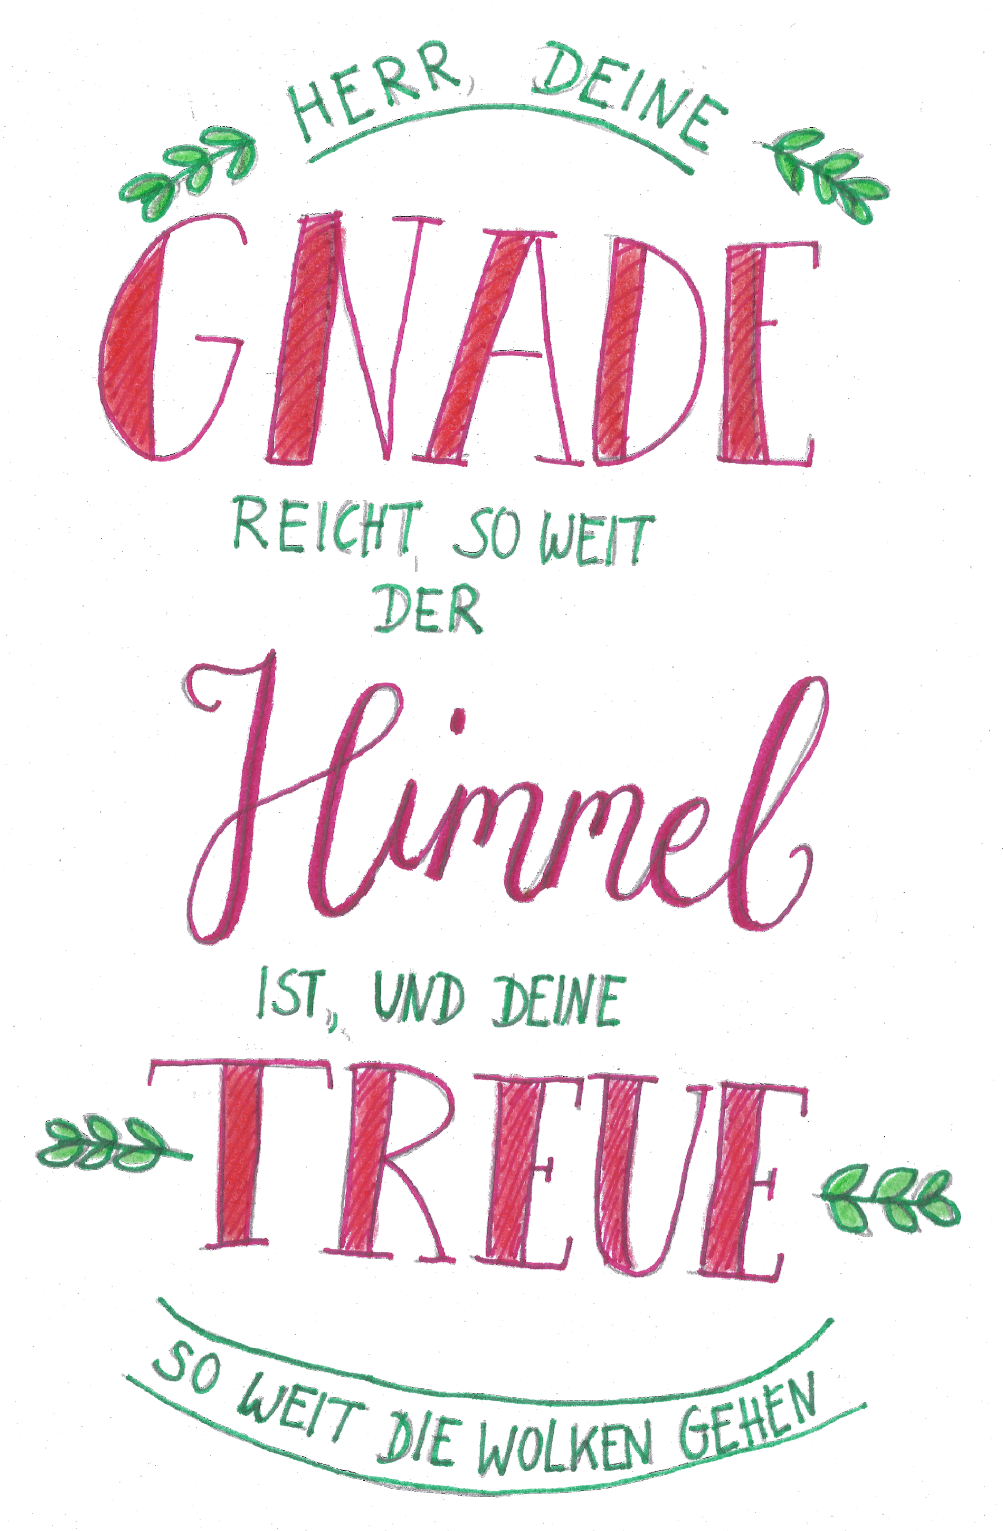 HERR, DEINE
GNADE
REICHT, SO WEIT
DER
Himmel
IST, UND DEINE
TREUE
SO WEIT DIE WOLKEN GEHEN